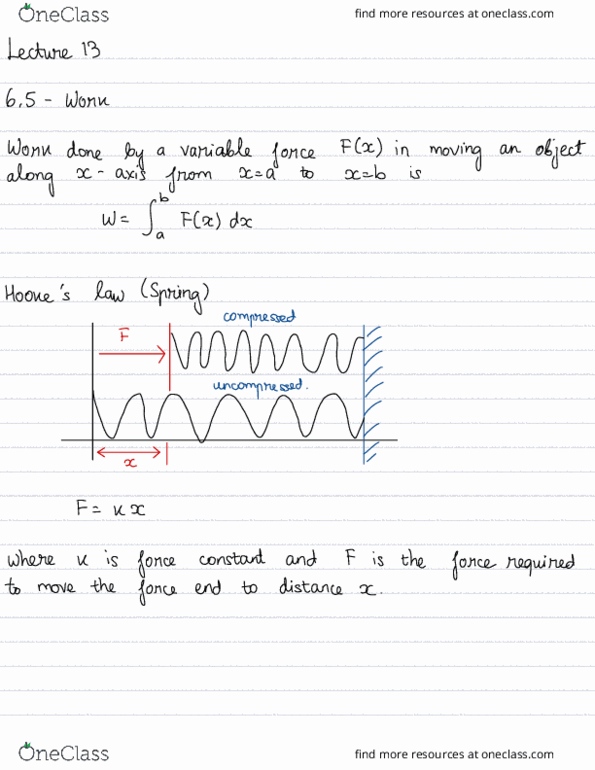 OneClass find more resources at oneclass.com
Lecture 13
6.5 - Work
Work done by a variable force F(x) in moving an object
along x-axis from x=a to x=b is
W= ∫_a^b F(x) dx
Hooke's law (Spring)
compressed
F
uncompressed.
x
F= kx
where k is force constant and F is the force required
to move the force end to distance x.
OneClass find more resources at oneclass.com